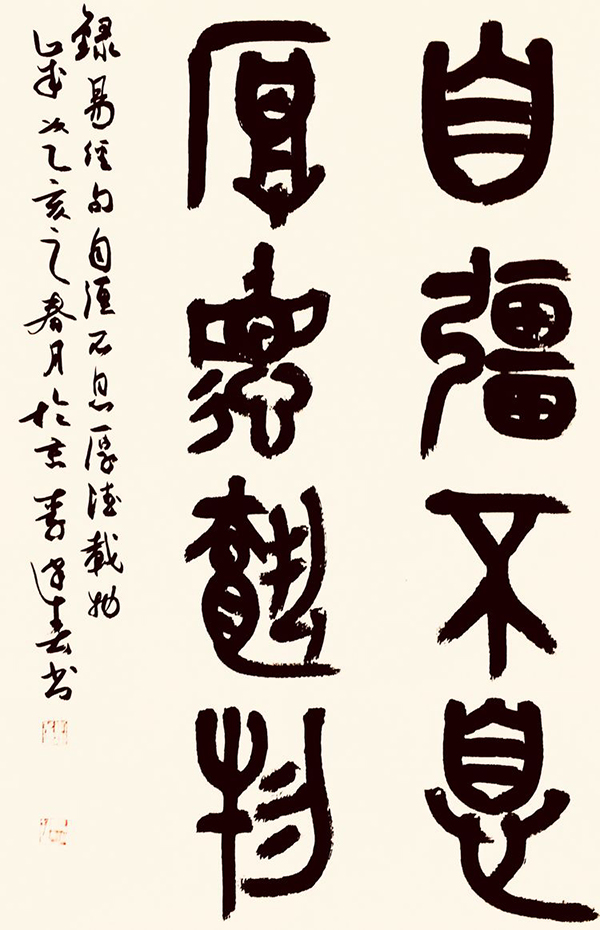 自彊不息
厚德載物
録易經句自彊不息厚德載物
歲次乙亥之春月於京李澤春書